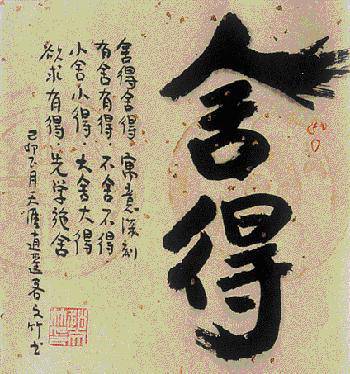 舍得
舍得舍得，寓意深刻
有舍有得，不舍不得，
小舍小得，大舍大得
欲求有得，先学施舍
己卯八月天涯逍遥客文竹书